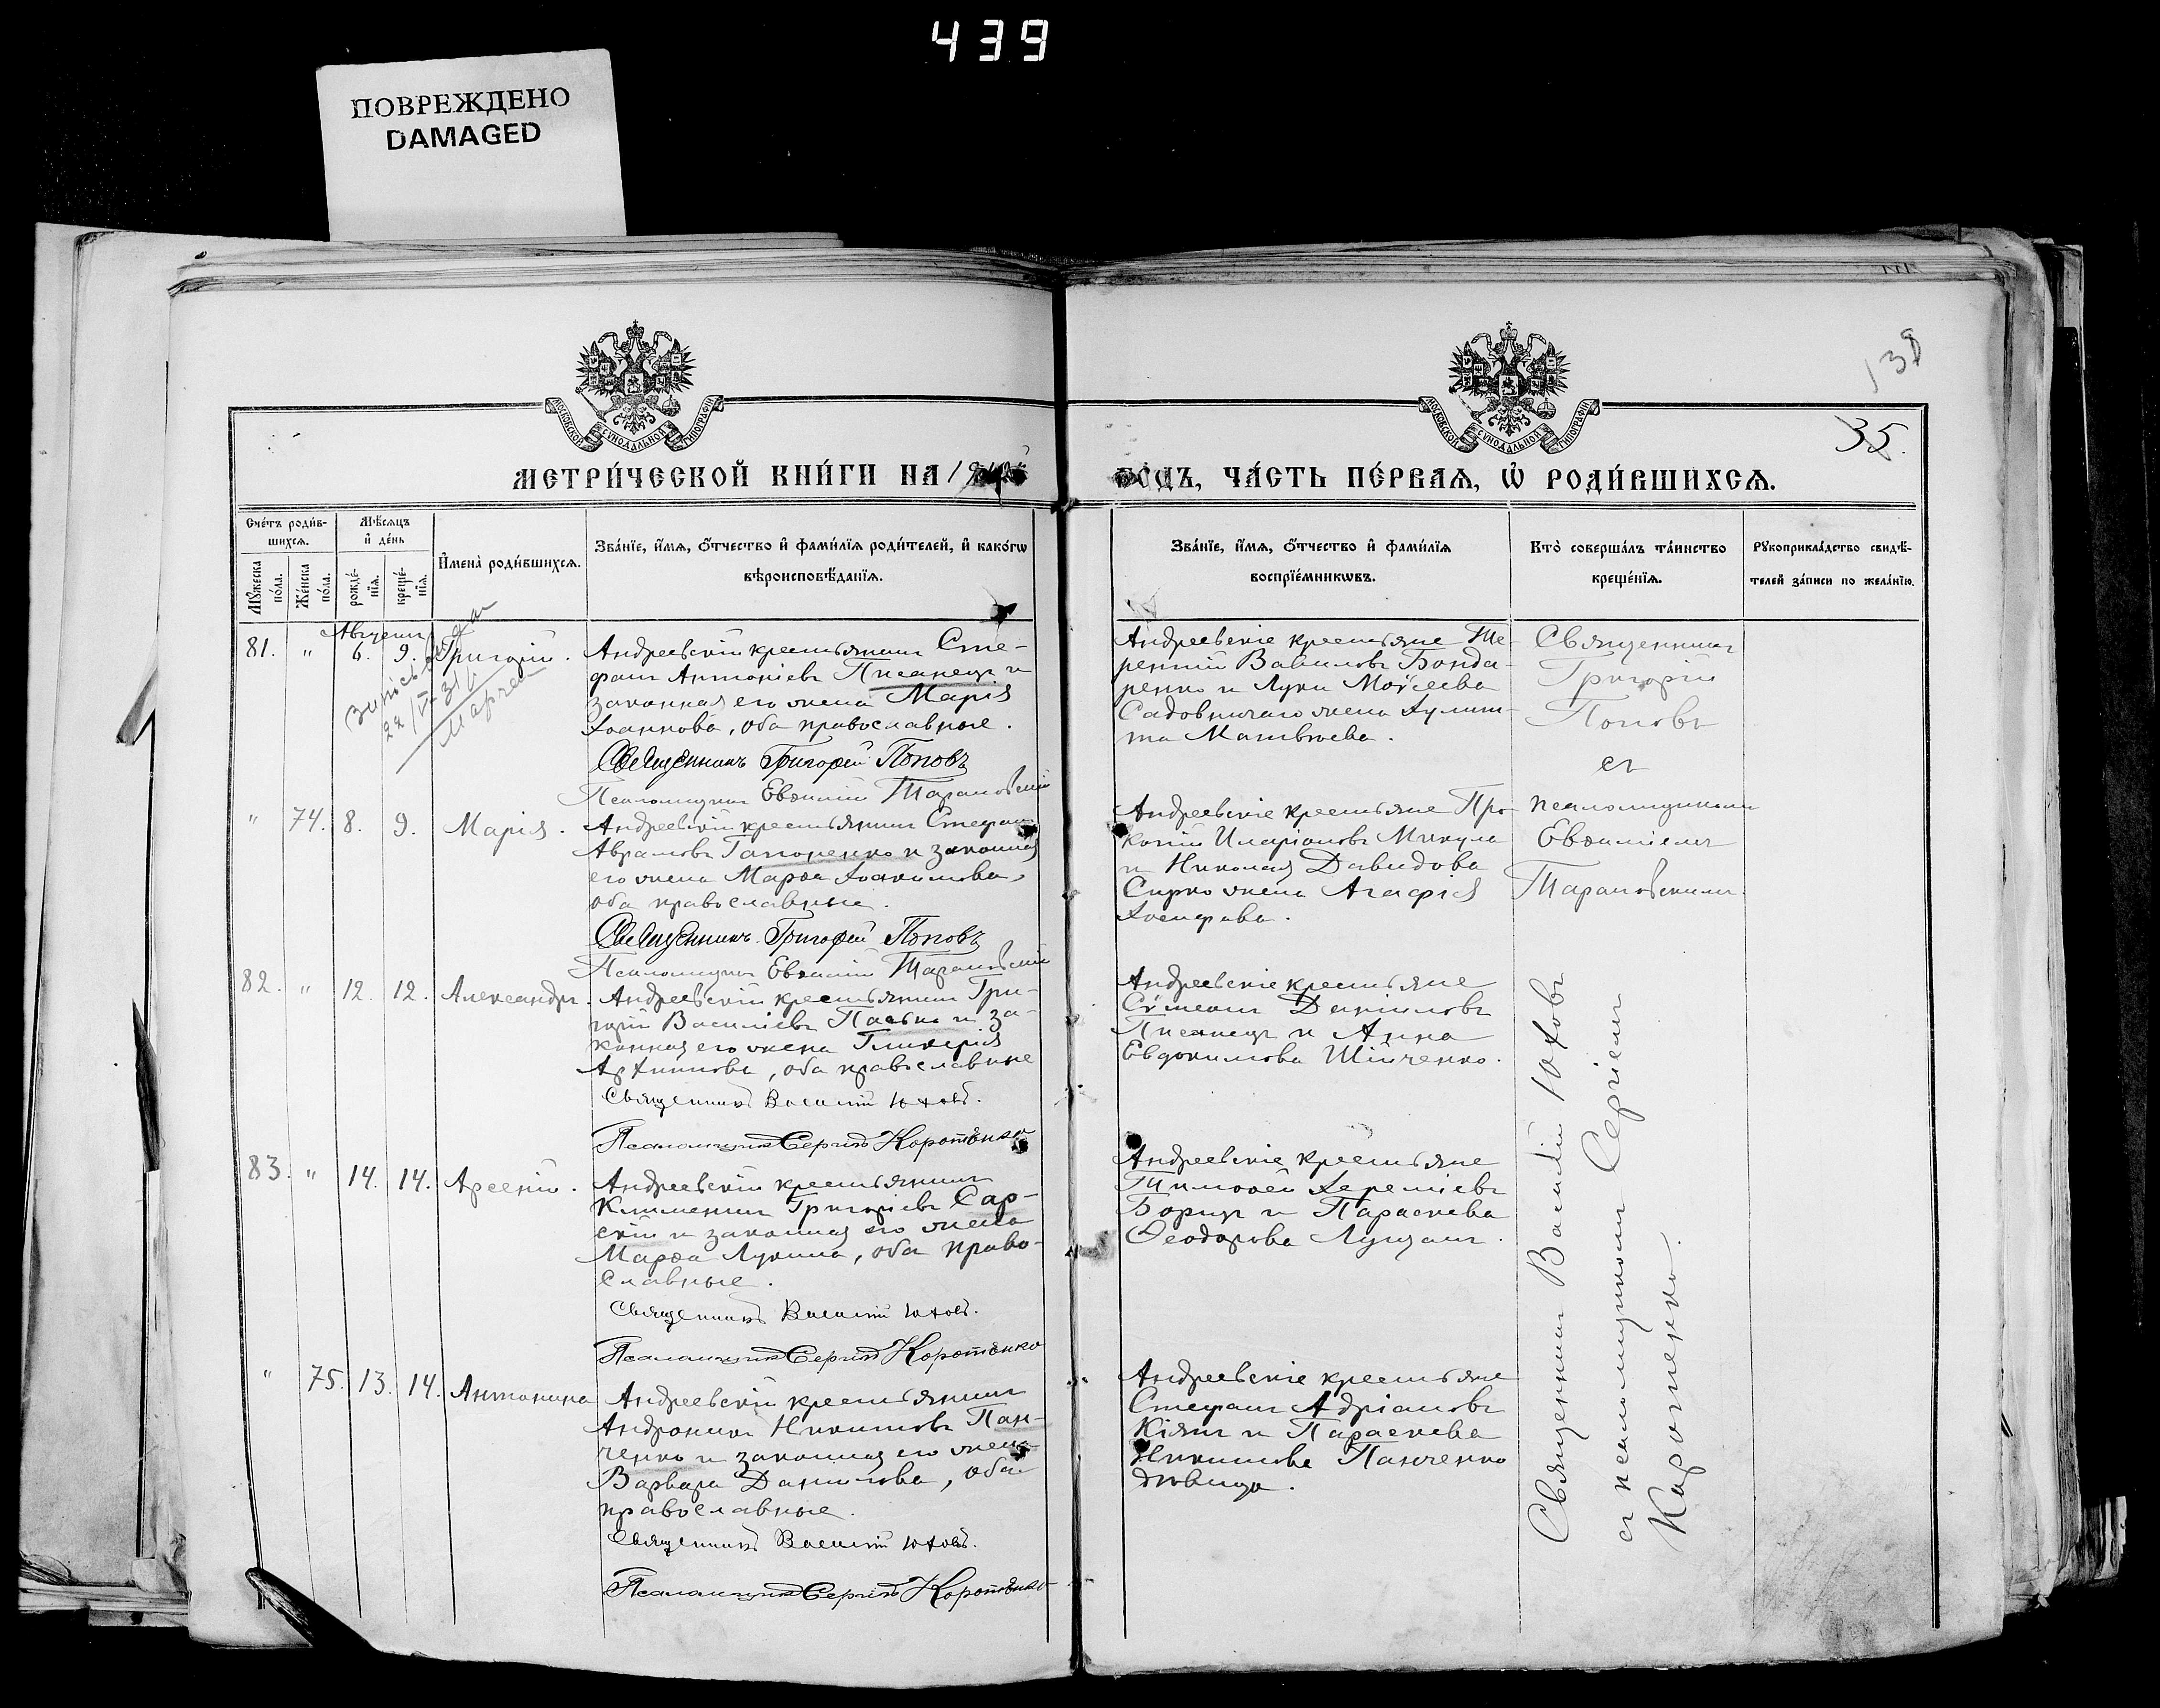 439
ПОВРЕЖДЕНО
DAMAGED
138
35.
МОСКОВСКОЙ СѴНОДАЛЬНОЙ ТИПОГРАФІИ
МОСКОВСКОЙ СѴНОДАЛЬНОЙ ТИПОГРАФІИ
МЕТРИ́ЧЕСКОЙ КНИ́ГИ НА 19
ГО́ДЪ, ЧА́СТЬ ПЕ́РВАѦ, Ѡ҆ РОДИ́ВШИХСѦ.
Сче́тъ роди́в-
шихсѧ.
Мꙋ́жеска по́ла.
Же́нска по́ла.
Мѣ́сѧцъ
и҆ де́нь
рожде́-
нїѧ.
креще́-
нїѧ.
И҆мена̀ роди́вшихсѧ.
Зва́нїе, и҆́мѧ, ѻ҆́тчество и҆ фами́лїѧ роди́телей, и҆ како́гѡ
вѣроисповѣ́данїѧ.
Зва́нїе, и҆́мѧ, ѻ҆́тчество и҆ фами́лїѧ
воспрїе́мникѡвъ.
Кто̀ соверша́лъ та́инство
креще́нїѧ.
Рꙋкоприкла́дство свидѣ́-
телей за́писи по жела́нїю.
Августъ
81. " 6. 9. Григорій.
22/VI-31
Андреевскій крестьянинъ Сте-
фанъ Антоніевъ Писанецъ и
законная его жена Марія
Іоаннова, оба православные.
Священникъ Григорій Поповъ
Псаломщикъ Евѳимій Тарановскій
Андреевскіе крестьяне Те-
рентій Вавиловъ Бонда-
ренко и Луки Моѵсеева
Садовничаго жена Іулит-
та Матвѣева.
Священникъ
Григорій
Поповъ
съ
псаломщикомъ
Евѳиміемъ
Тарановскимъ.
" 74. 8. 9. Марія.
Андреевскій крестьянинъ Стефанъ
Аврамовъ Гапоненко и законная
его жена Марѳа Іоакимова,
оба православные.
Священникъ Григорій Поповъ
Псаломщикъ Евѳимій Тарановскій
Андреевскіе крестьяне Про-
копій Иларіоновъ Микула
и Николая Давидова
Сирко жена Агафія
Іосифова.
82. " 12. 12. Александръ.
Андреевскій крестьянинъ Гри-
горій Василіевъ Пасько и за-
конная его жена Гликерія
Архипова, оба православные
Священникъ Василій Юховъ.
Псаломщикъ Сергій Коротенко
Андреевскіе крестьяне
Сѵмеонъ Даниловъ
Писанецъ и Анна
Евдокимова Шійченко.
Священникъ Василій Юховъ
съ псаломщикомъ Сергіемъ
Коротенко.
83. " 14. 14. Арсеній.
Андреевскій крестьянинъ
Климентъ Григоріевъ Сар-
скій и законная его жена
Марѳа Лукина, оба право-
славные.
Священникъ Василій Юховъ.
Псаломщикъ Сергій Коротенко
Андреевскіе крестьяне
Тимоѳей Іереміевъ
Борщъ и Параскева
Ѳеодорова Луцанъ.
" 75. 13. 14. Антонина
Андреевскій крестьянинъ
Андроникъ Никитовъ Пан-
ченко и законная его жена
Варвара Данилова, оба
православные.
Священникъ Василій Юховъ.
Псаломщикъ Сергій Коротенко
Андреевскіе крестьяне
Стефанъ Адріановъ
Кіянъ и Параскева
Никитова Панченко
дѣвица.